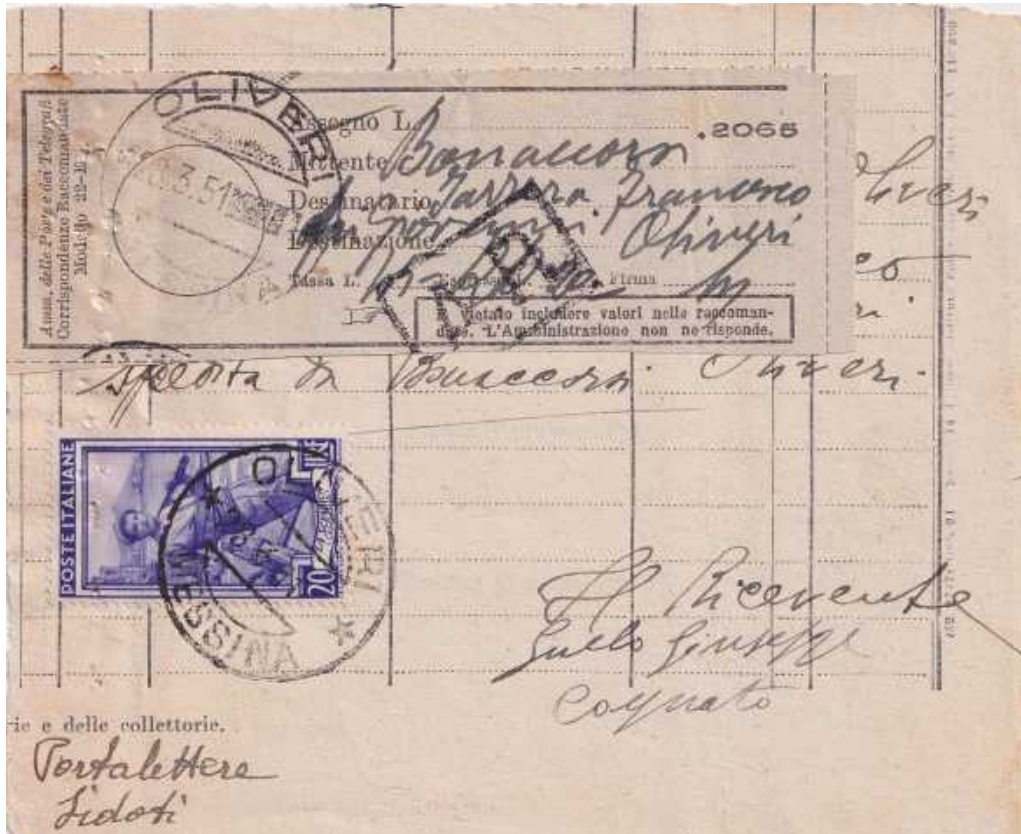 Amm. delle Poste e dei Telegrafi
Corrispondenze Raccomandate
OLIVERI
3.51
Assegno L. .2065
Mittente Bonaccorsi
Destinatario Francesco
fu Giovanni
Destinazione Oliveri
Tassa L. Firma
È vietato includere valori nelle raccoman-
date. L'Amministrazione non ne risponde.
Oliveri
da Bonaccorsi Oliveri.
POSTE ITALIANE
LIRE 20
OLIVERI
MESSINA
Il Ricevente
Gullo Giuseppe
Cognato
ie e delle collettorie.
Portalettere
Sidoti